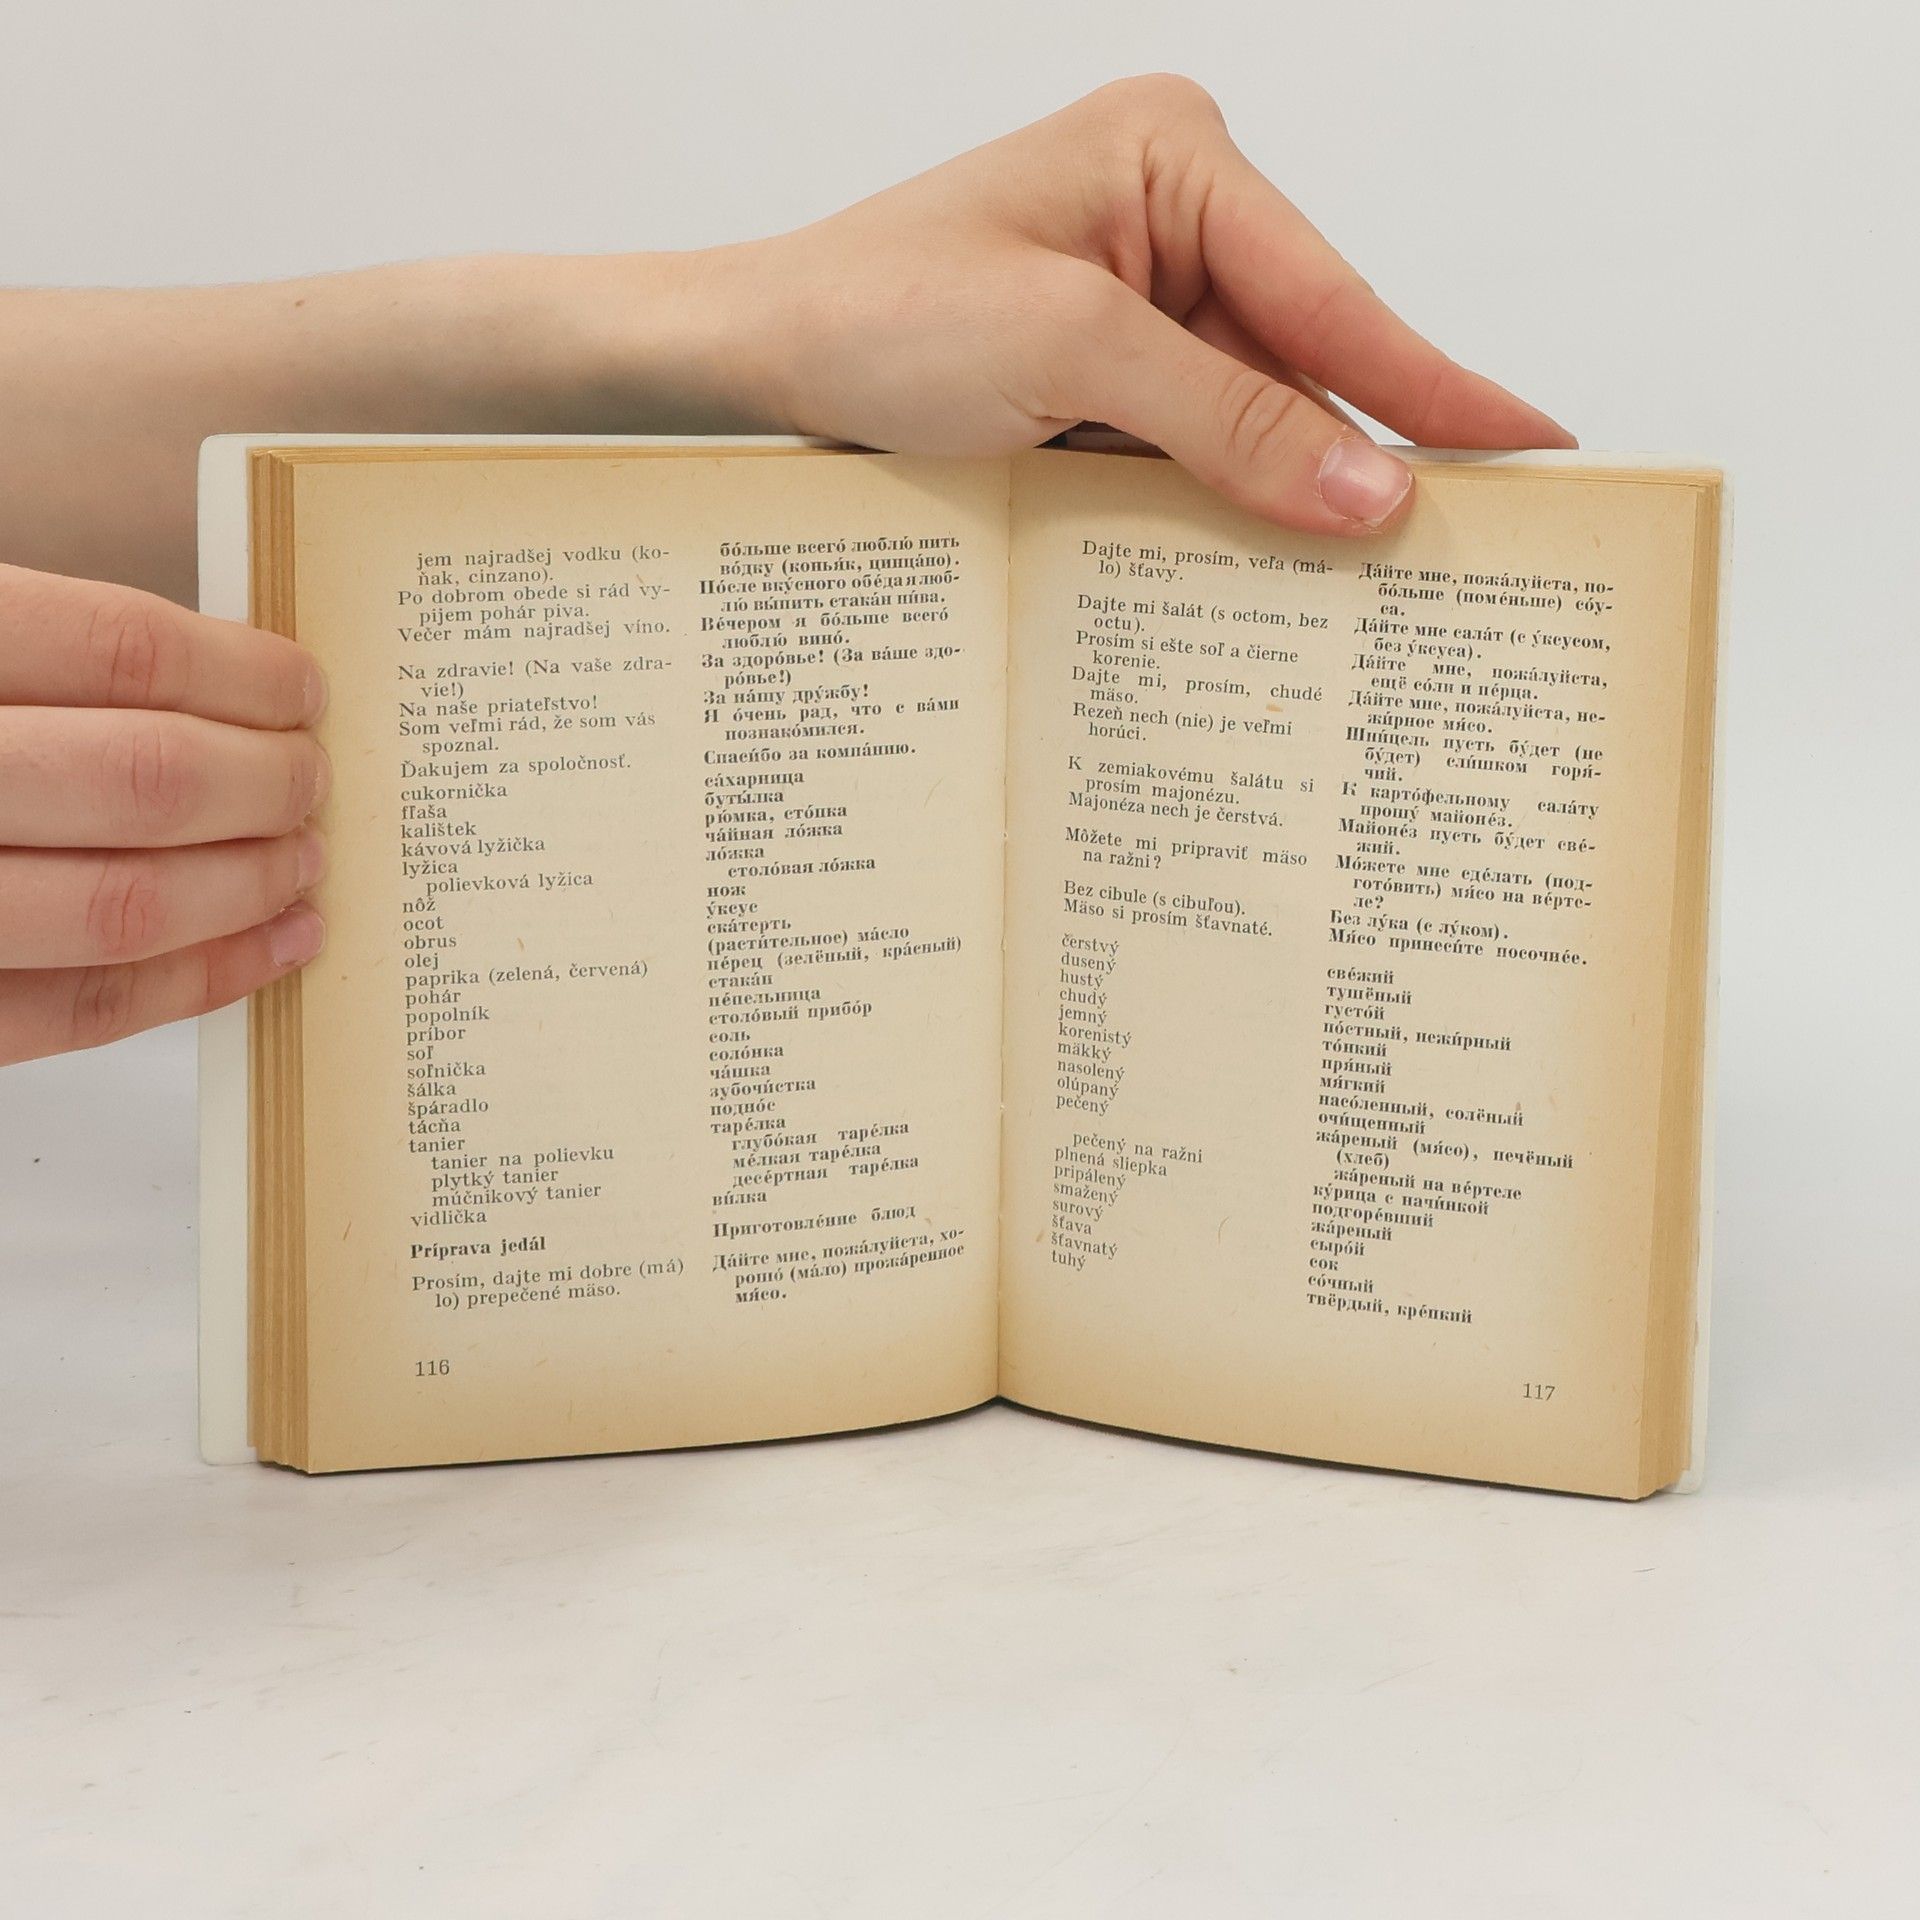 jem najradšej vodku (ko-
ňak, cinzano).
Po dobrom obede si rád vy-
pijem pohár piva.
Večer mám najradšej víno.
Na zdravie! (Na vaše zdra-
vie!)
Na naše priateľstvo!
Som veľmi rád, že som vás
spoznal.
Ďakujem za spoločnosť.
cukornička
fľaša
kalištek
kávová lyžička
lyžica
polievková lyžica
nôž
ocot
obrus
olej
paprika (zelená, červená)
pohár
popolník
príbor
soľ
soľnička
šálka
špáradlo
tácňa
tanier
tanier na polievku
plytký tanier
múčnikový tanier
vidlička
Príprava jedál
Prosím, dajte mi dobre (má)
lo) prepečené mäso.
116
бо́льше всего́ люблю́ пить
во́дку (конья́к, цинца́но).
По́сле вку́сного обе́да я люб-
лю́ вы́пить стака́н пи́ва.
Ве́чером я бо́льше всего́
люблю́ вино́.
За здоро́вье! (За ва́ше здо-
ро́вье!)
За на́шу дру́жбу!
Я о́чень рад, что с ва́ми
познако́мился.
Спаси́бо за компа́нию.
са́харница
буты́лка
рю́мка, сто́пка
ча́йная ло́жка
ло́жка
столо́вая ло́жка
нож
у́ксус
ска́терть
(расти́тельное) ма́сло
пе́рец (зелёный, кра́сный)
стака́н
пе́пельница
столо́вый прибо́р
соль
соло́нка
ча́шка
зубочи́стка
подно́с
таре́лка
глубо́кая таре́лка
ме́лкая таре́лка
десе́ртная таре́лка
ви́лка
Приготовле́ние блюд
Да́йте мне, пожа́луйста, хо-
рошо́ (ма́ло) прожа́ренное
мя́со.
Dajte mi, prosím, veľa (má-
lo) šťavy.
Dajte mi šalát (s octom, bez
octu).
Prosím si ešte soľ a čierne
korenie.
Dajte mi, prosím, chudé
mäso.
Rezeň nech (nie) je veľmi
horúci.
K zemiakovému šalátu si
prosím majonézu.
Majonéza nech je čerstvá.
Môžete mi pripraviť mäso
na ražni?
Bez cibule (s cibuľou).
Mäso si prosím šťavnaté.
čerstvý
dusený
hustý
chudý
jemný
korenistý
mäkký
nasolený
olúpaný
pečený
pečený na ražni
plnená sliepka
pripálený
smažený
surový
šťava
šťavnatý
tuhý
Да́йте мне, пожа́луйста, по-
бо́льше (поме́ньше) со́у-
са.
Да́йте мне сала́т (с у́ксусом,
без у́ксуса).
Да́йте мне, пожа́луйста,
ещё со́ли и пе́рца.
Да́йте мне, пожа́луйста, не-
жи́рное мя́со.
Шни́цель пусть бу́дет (не
бу́дет) сли́шком горя́-
чий.
К карто́фельному сала́ту
прошу́ майоне́з.
Майоне́з пусть бу́дет све́-
жий.
Мо́жете мне сде́лать (под-
гото́вить) мя́со на ве́рте-
ле?
Без лу́ка (с лу́ком).
Мя́со принеси́те посочне́е.
све́жий
тушёный
густо́й
по́стный, нежи́рный
то́нкий
пря́ный
мя́гкий
насо́ленный, солёный
очи́щенный
жа́реный (мя́со), печёный
(хлеб)
жа́реный на ве́ртеле
ку́рица с начи́нкой
подгоре́вший
жа́реный
сыро́й
сок
со́чный
твёрдый, кре́пкий
117